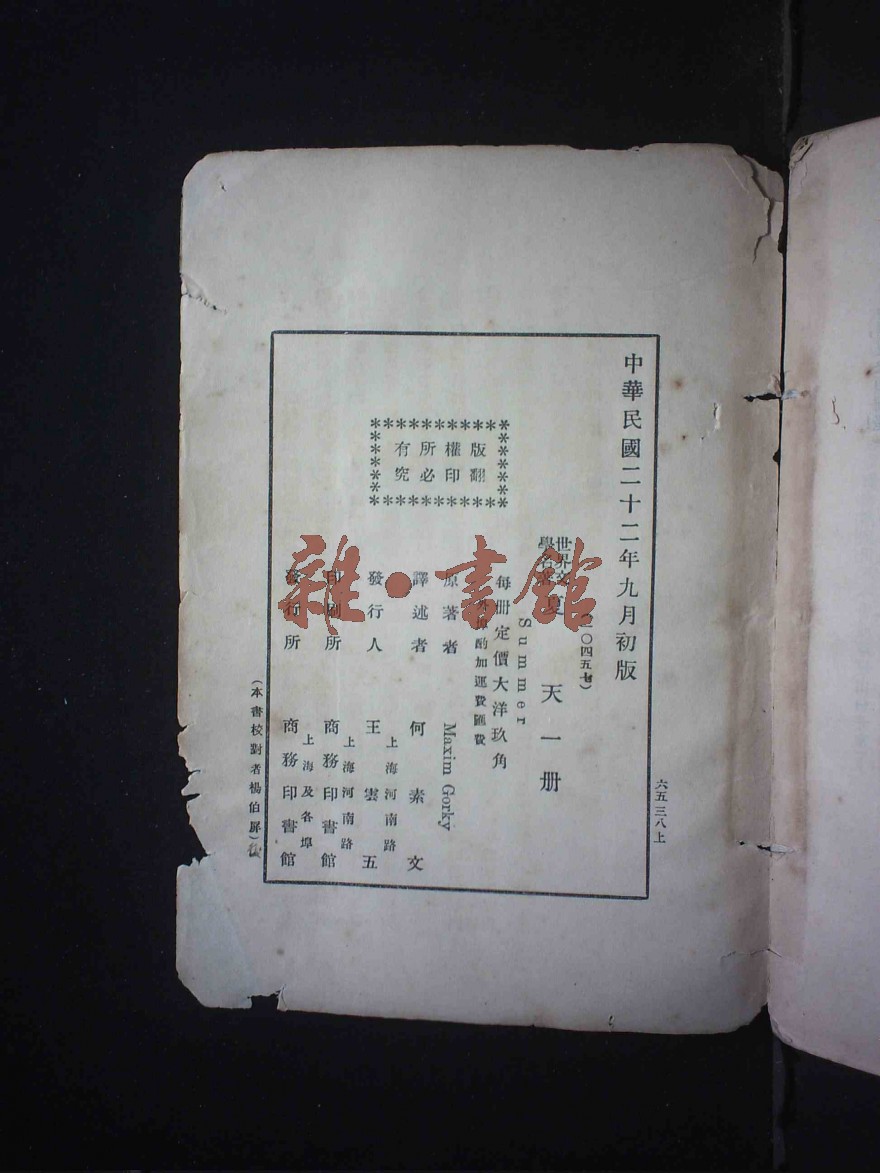 中華民國二十二年九月初版
六五三八上
世界文
學名著
夏 天 一 册
Summer
每册定價大洋玖角
外埠酌加運費匯費
版權所有
翻印必究
原著者 Maxim Gorky
譯述者 何素文
發行人 王雲五
上海河南路
印刷所 商務印書館
上海河南路
發行所 商務印書館
上海及各埠
(本書校對者楊伯屏)
雜·書館